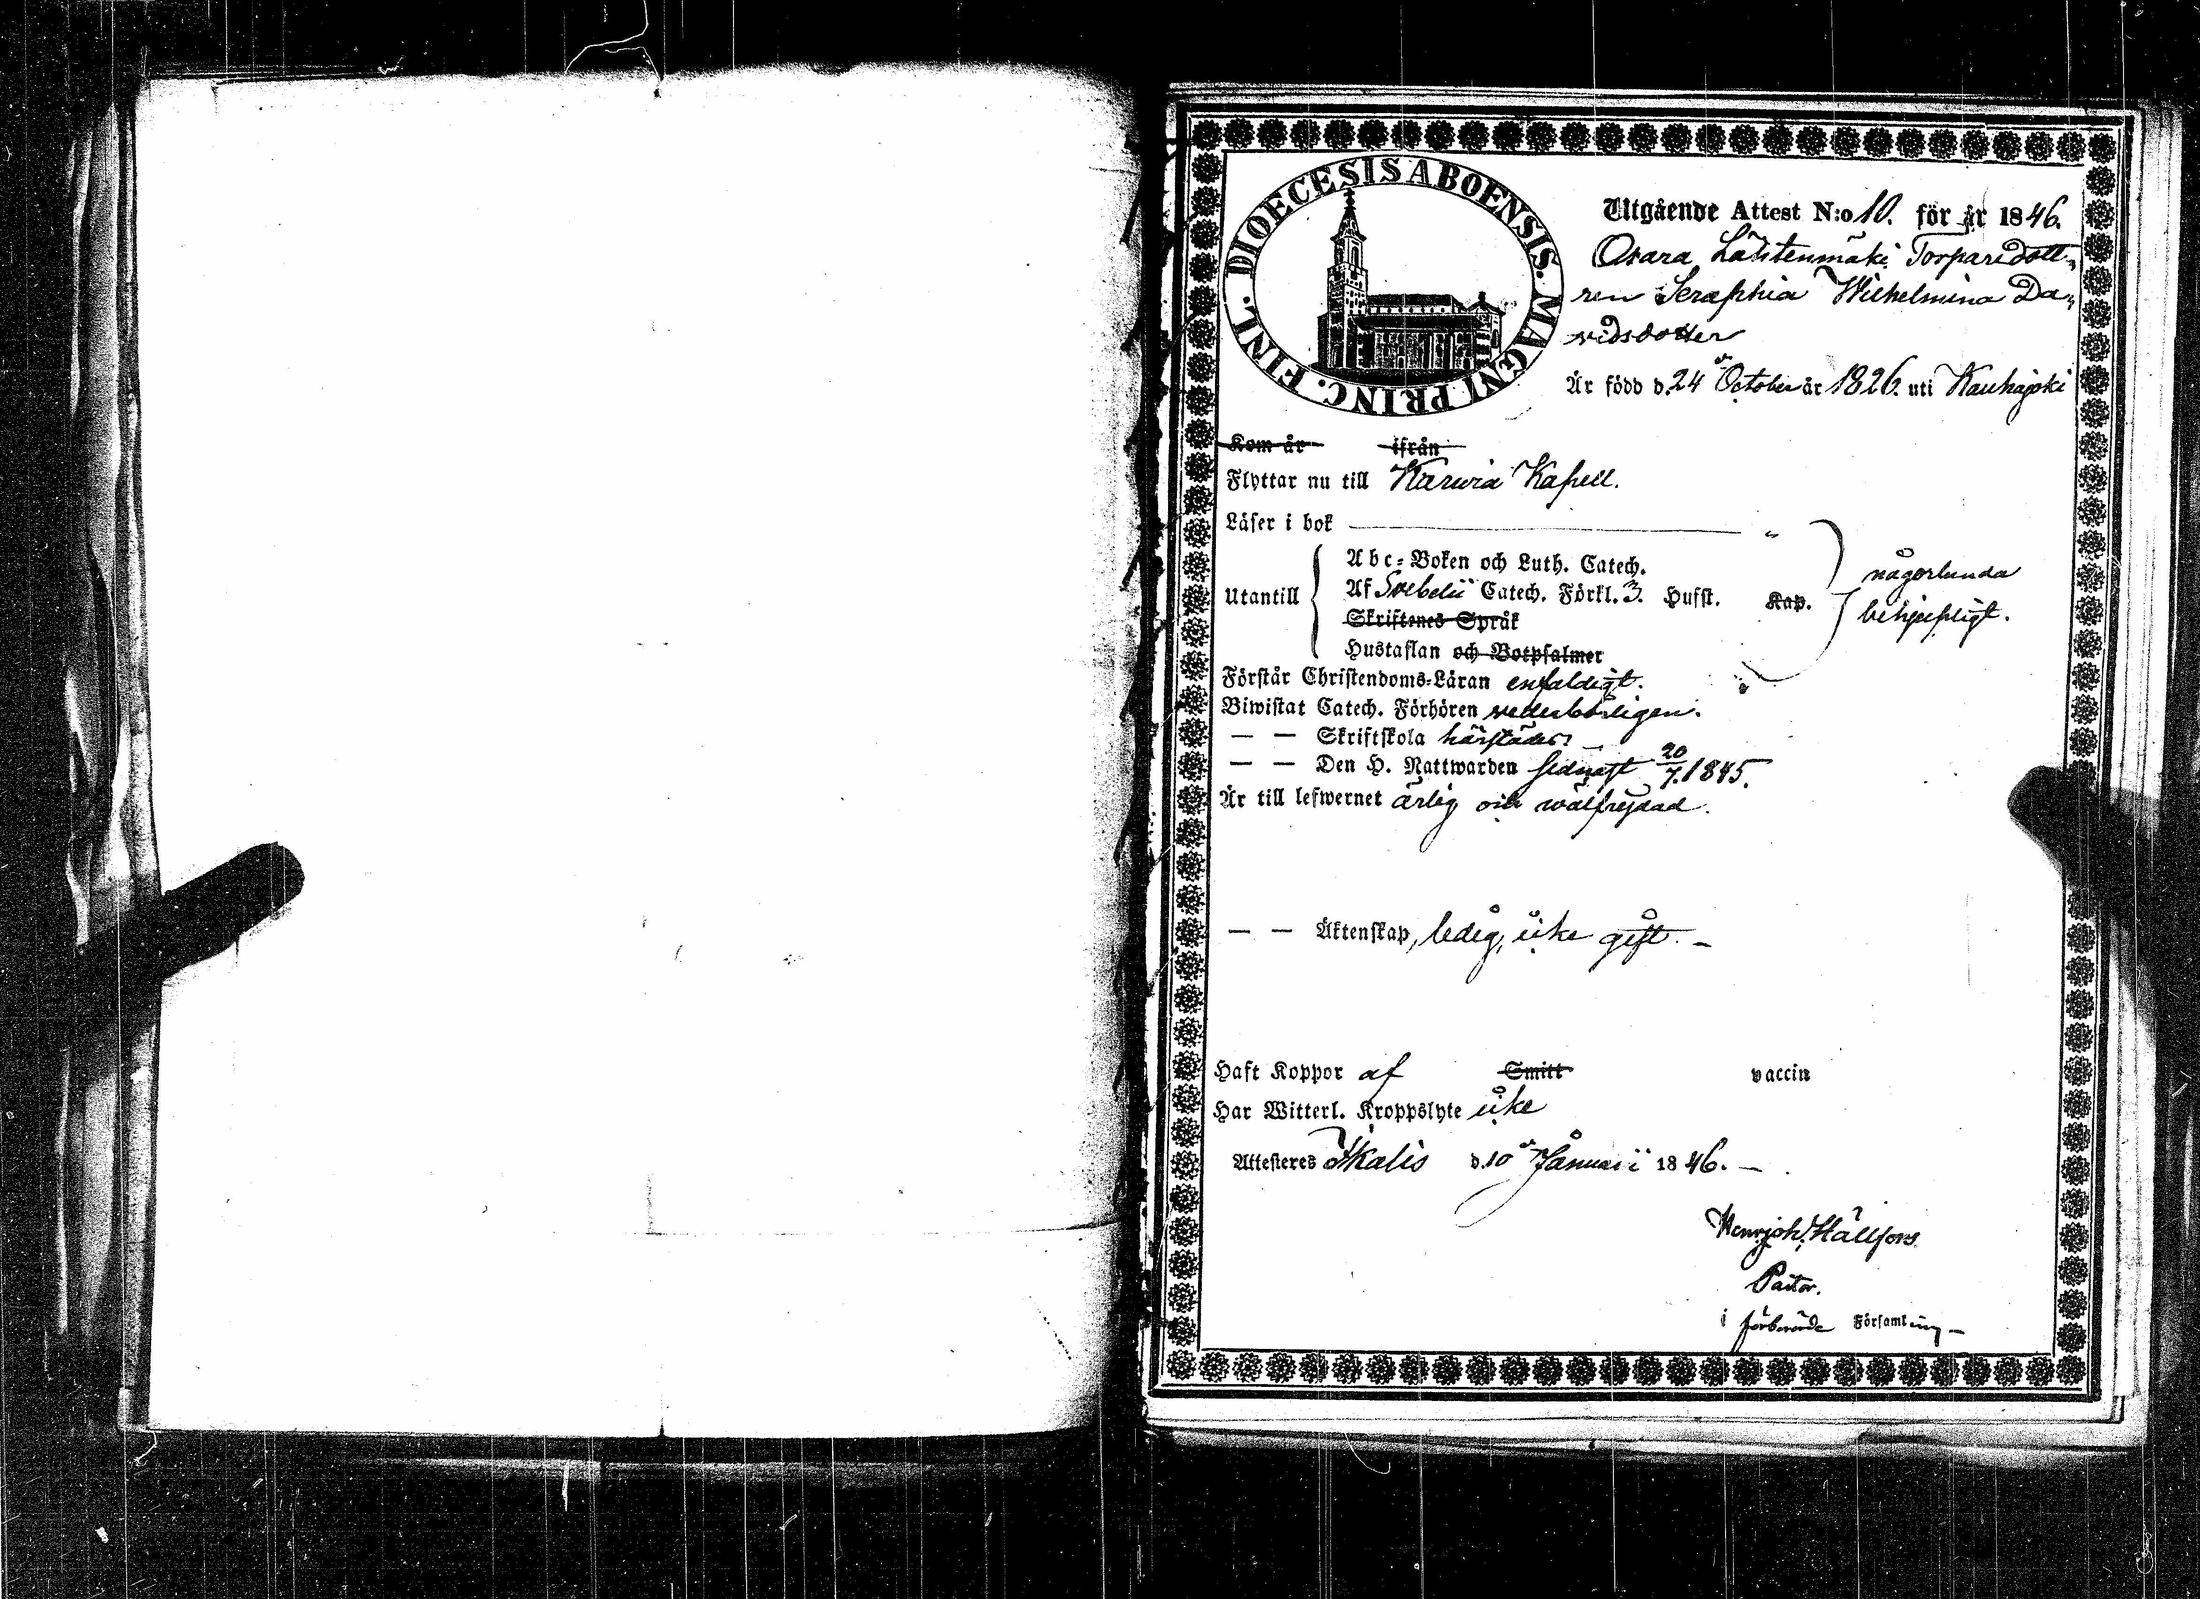 DIOECESIS ABOENSIS. MAGNI PRINC. FINL.
Utgående Attest N:o 10. för år 1846.
Osara Lähtenmäki Torparedott„
ren Seraphia Wilhelmina Da„
vidsdotter
Är född d. 24 October år 1826. uti Kauhajoki
Kom år ifrån
Flyttar nu till Karvia Kapell.
Läser i bok
Utantill
Abc-Boken och Luth. Catech.
Af Svebelii Catech. Förkl. 3. Hufst. Kap.
Skriftenes Språk
Hustaflan och Botpsalmer
någorlunda
behjelpligt.
Förstår Christendoms-Läran enfaldigt.
Biwistat Catech. Förhören vederbörligen.
— — Skriftskola härstädes
— — Den H. Nattwarden sednast 20/7. 1845.
Är till lefwernet ärlig och wälfrejdad.
— — Äktenskap, ledig, icke gift. —
Haft Koppor af Smitt vaccin
Har Witterl. Kroppslyte icke
Attesteres Ikalis d. 10 Januarii 1846. —
Henr. Joh. Hällfors
Pastor.
i förberörde Församling —